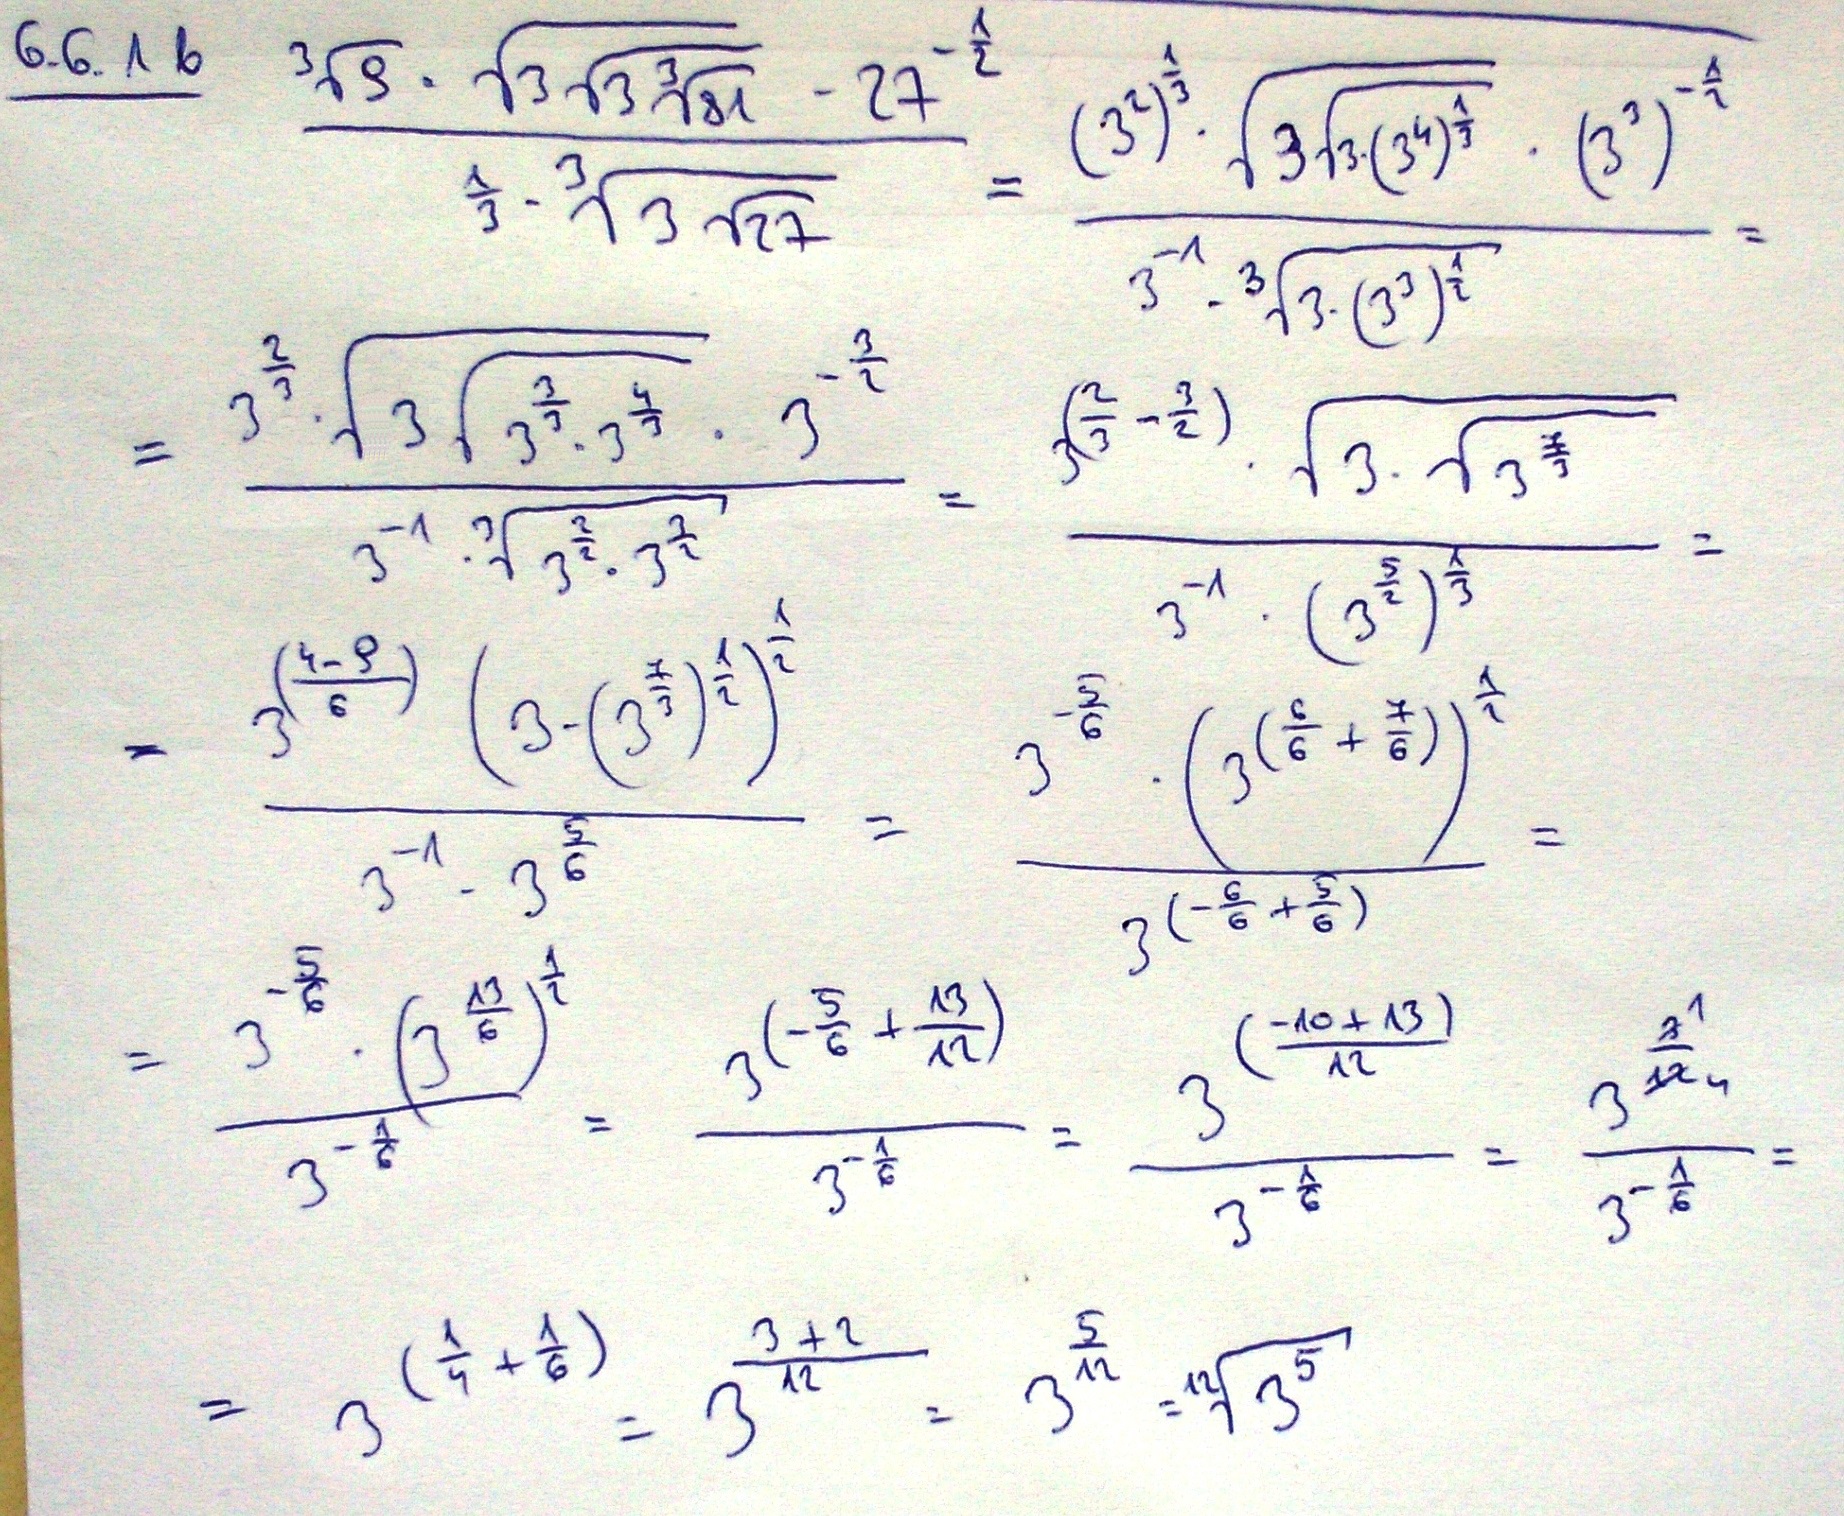 6.6.1 b  \frac{\sqrt[3]{9} \cdot \sqrt{3\sqrt{3\sqrt[3]{81}}} \cdot 27^{-\frac{1}{2}}}{\frac{1}{3} \cdot \sqrt[3]{3\sqrt{27}}} = \frac{(3^2)^{\frac{1}{3}} \cdot \sqrt{3\sqrt{3 \cdot (3^4)^{\frac{1}{3}}}} \cdot (3^3)^{-\frac{1}{2}}}{3^{-1} \cdot \sqrt[3]{3 \cdot (3^3)^{\frac{1}{2}}}} =
= \frac{3^{\frac{2}{3}} \cdot \sqrt{3\sqrt{3^{\frac{3}{3}} \cdot 3^{\frac{4}{3}}}} \cdot 3^{-\frac{3}{2}}}{3^{-1} \cdot \sqrt[3]{3^{\frac{2}{2}} \cdot 3^{\frac{3}{2}}}} = \frac{3^{(\frac{2}{3} - \frac{3}{2})} \cdot \sqrt{3 \cdot \sqrt{3^{\frac{7}{3}}}}}{3^{-1} \cdot (3^{\frac{5}{2}})^{\frac{1}{3}}} =
= \frac{3^{(\frac{4-9}{6})} (3 \cdot (3^{\frac{7}{3}})^{\frac{1}{2}})^{\frac{1}{2}}}{3^{-1} \cdot 3^{\frac{5}{6}}} = \frac{3^{-\frac{5}{6}} \cdot (3^{(\frac{6}{6} + \frac{7}{6})})^{\frac{1}{2}}}{3^{(-\frac{6}{6} + \frac{5}{6})}} =
= \frac{3^{-\frac{5}{6}} \cdot (3^{\frac{13}{6}})^{\frac{1}{2}}}{3^{-\frac{1}{6}}} = \frac{3^{(-\frac{5}{6} + \frac{13}{12})}}{3^{-\frac{1}{6}}} = \frac{3^{(\frac{-10+13}{12})}}{3^{-\frac{1}{6}}} = \frac{3^{\frac{1}{4}}}{3^{-\frac{1}{6}}} =
= 3^{(\frac{1}{4} + \frac{1}{6})} = 3^{\frac{3+2}{12}} = 3^{\frac{5}{12}} = \sqrt[12]{3^5}